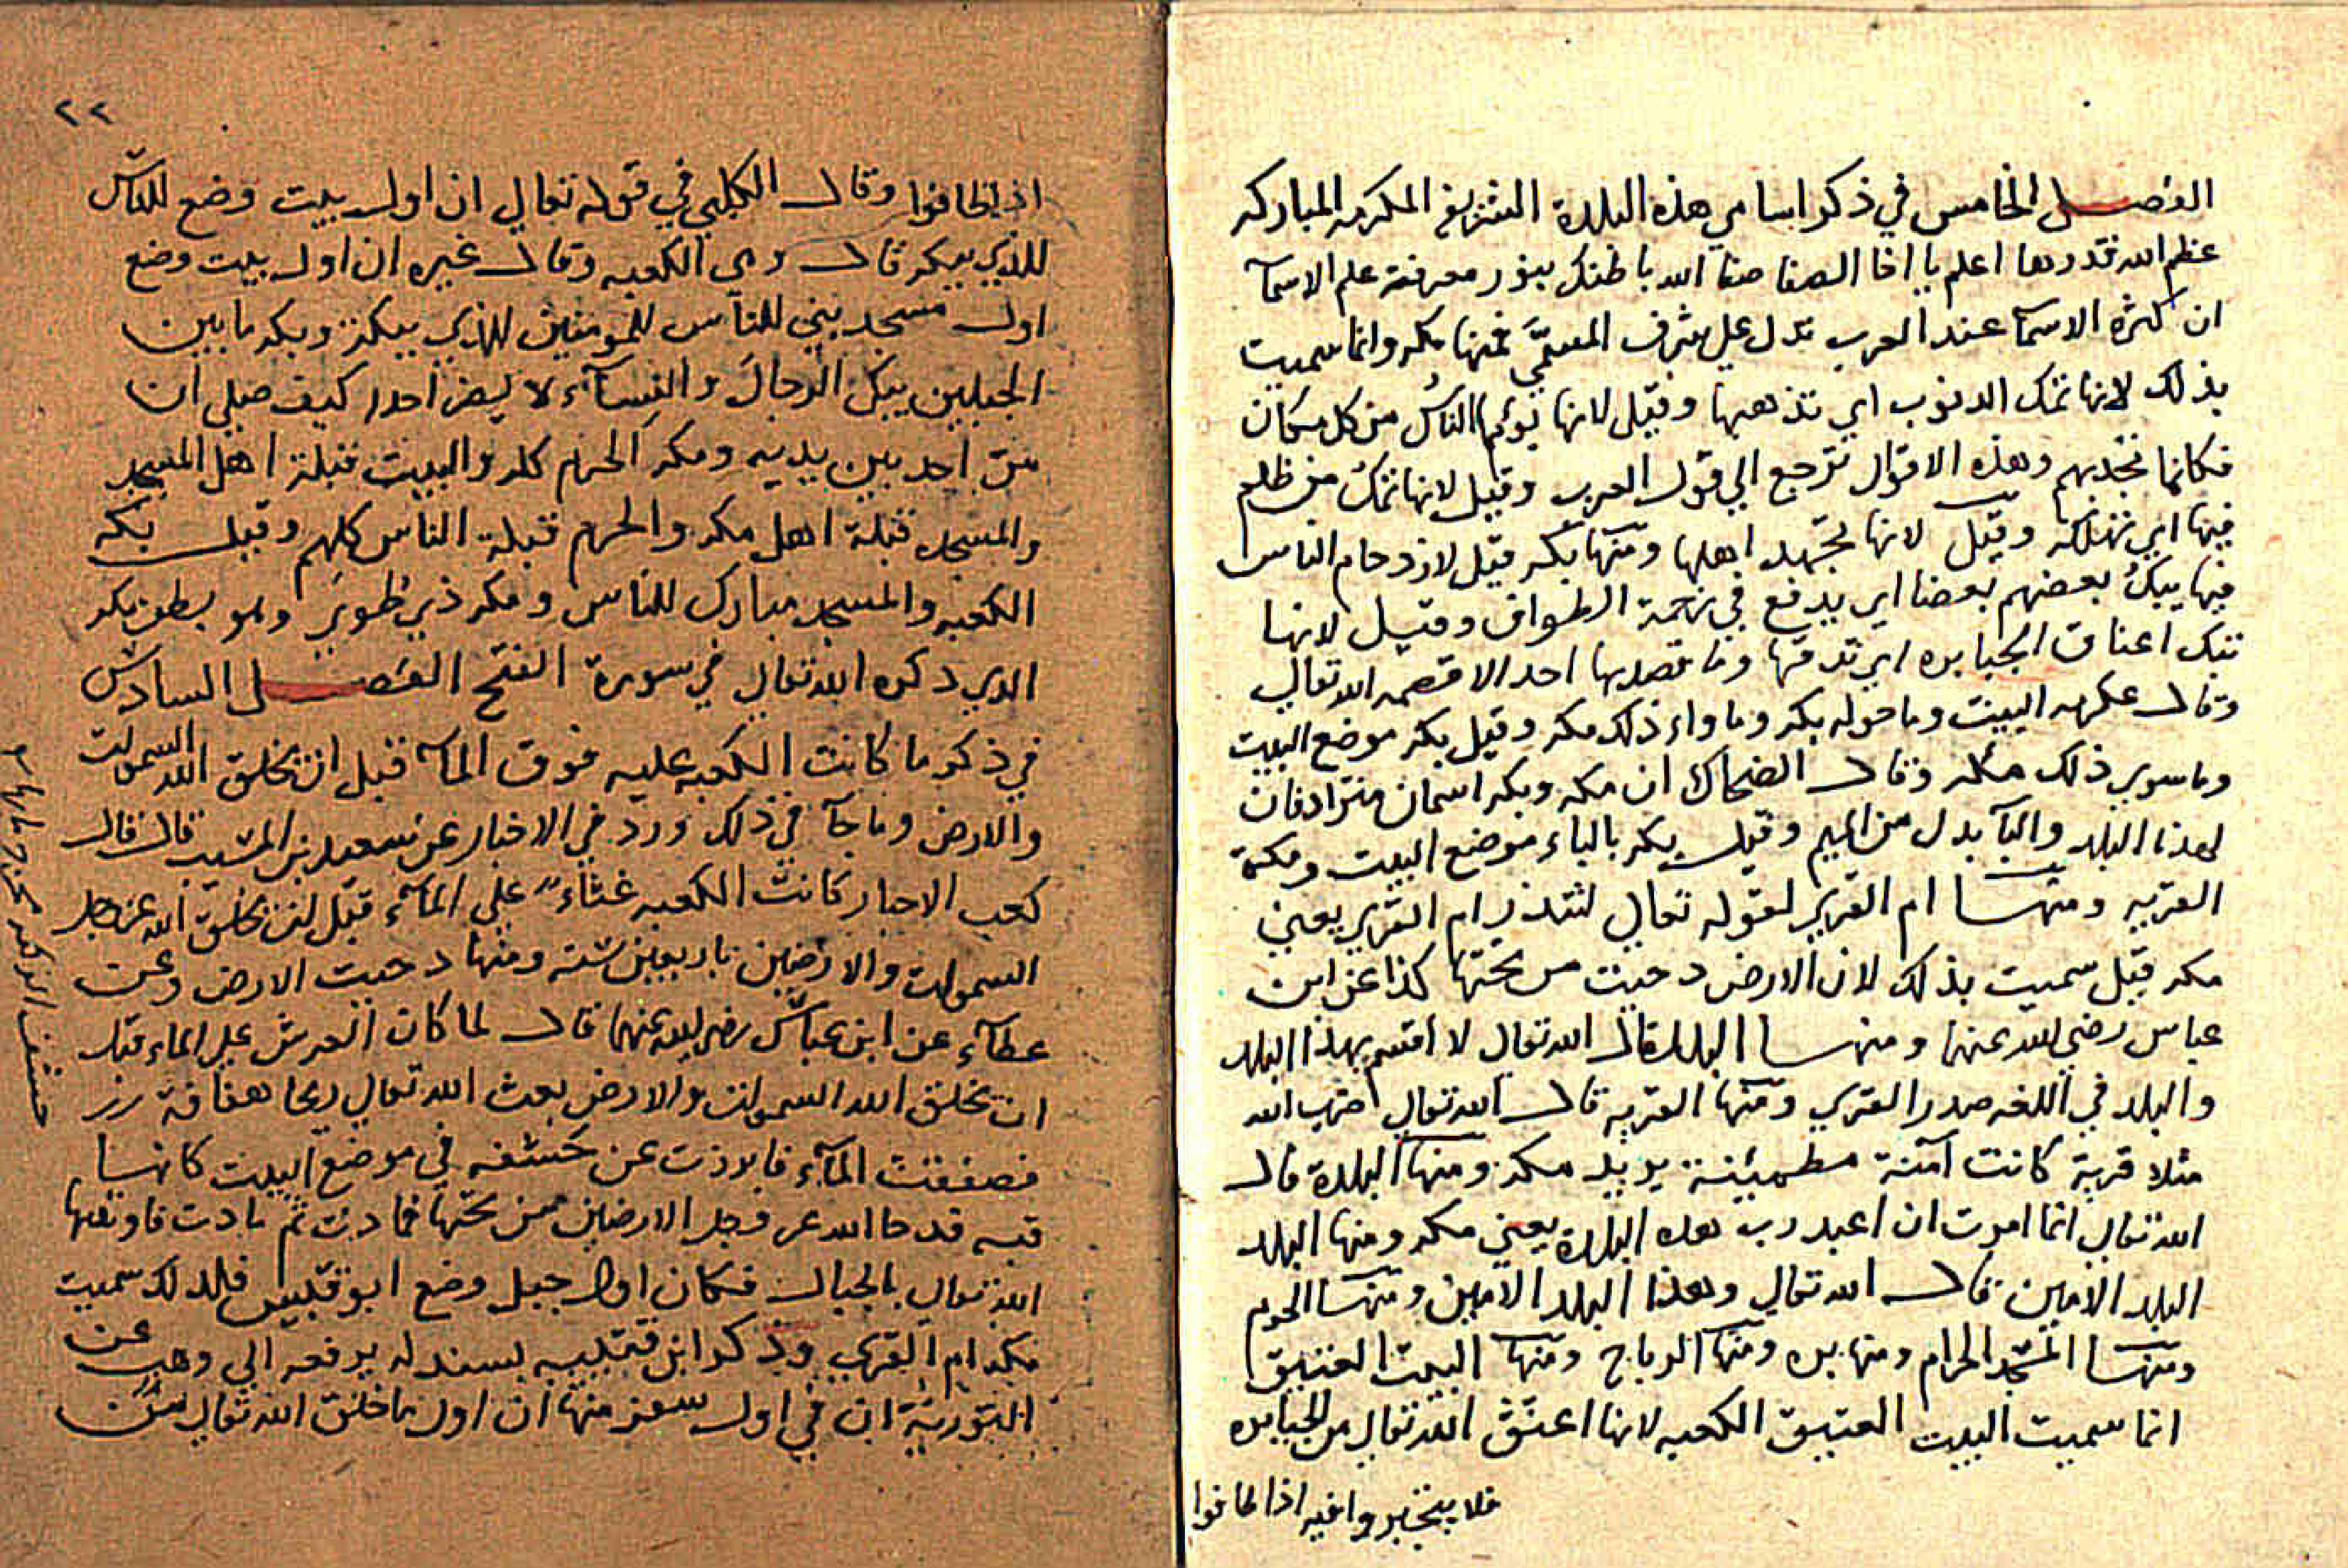 الفصل الخامس في ذكر اسامي هذه البلدة الشريفة المكرمه المباركه
عظم الله قدرها اعلم يا اخا الصفا صفا الله باطنك بنور معرفته علم الاسمآ
ان كثرة الاسمآ عند العرب تدل علي شرف المسمَّي فمنها مكه وانما سميت
بذلك لانها تمك الدنوب اي تذهبها وقيل لانها يؤمها الناس من كل مكان
فكانما تجذبهم وهذه الاقوال ترجع الي قول العرب وقيل لانها تمك من ظلم
فيها اي تهلكه وقيل لانها تجهد اهلها ومنها بكه قيل لازدحام الناس
فيها يبكُ بعضهم بعضا اي يدفع في زحمة الطواف وقيل لانها
تبك اعناق الجبابره اي تدقها وما قصدها احد الا قصمه الله تعالي
وقال عكرمه البيت وما حوله بكه وما وراء ذلك مكه وقيل بكه موضع البيت
وما سوي ذلك مكه وقال الضحاك ان مكه وبكه اسمان مترادفان
لهذا البلد والبآ بدل من الميم وقيل بكه بالباء موضع البيت ومكة
القريه ومنها ام القري لقوله تعالي لتنذر ام القري يعني
مكه قيل سميت بذلك لان الارض دحيت من تحتها كذا عن ابن
عباس رضي الله عنهما ومنها البلد قال الله تعالي لا اقسم بهذا البلد
والبلد في اللغه صدر القري ومنها القريه قال الله تعالي ضرب الله
مثلا قرية كانت آمنة مطمئنة يريد مكه ومنها البلدة قال
الله تعالي انما امرت ان اعبد رب هده البلدة يعني مكه ومنها البلد
البلد الامين قال الله تعالي وهذا البلد الامين ومنها الحرم
ومنها المسجد الحرام ومنها بره ومنها الرباح ومنها البيت العتيق
انما سميت البيت العتيق الكعبه لانها اعتق الله تعالي من الجبابره
فلا يتجبروا فيه اذا طافوا
٢٢
اذا طافوا وقال الكلبي في قوله تعالي ان اول بيت وضع للناس
للذي ببكه قال وهي الكعبه وقال غيره ان اول بيت وضع
اول مسجد بني للناس للمومنين للذي ببكة وبكه ما بين
الجبلين يبك الرجال والنسآء لا يضر احدا كيف صلي ان
مرّ احد بين يديه ومكه الحرم كله والبيت قبلة اهل المسجد
والمسجد قبلة اهل مكه والحرم قبلة الناس كلهم وقيل بكه
الكعبه والمسجد مبارك للناس ومكه ذي طوي وهو بطن مكه
الدي دكره الله تعالي في سورة الفتح الفصل السادس
في ذكر ما كانت الكعبه عليه فوق المآء قبل ان يخلق الله السموات
والارض وما جآ في ذلك ورد في الاخبار عن سعيد بن المسيب قال قال
كعب الاحبار كانت الكعبه غثاء علي المآء قبل ان يخلق الله عز وجل
السموات والارضين باربعين سنه ومنها دحيت الارض وعن
عطآء عن ابن عباس رضي الله عنهما قال لما كان العرش علي الماء قبل
ان يخلق الله السموات والارض بعث الله تعالي ريحا هفافة
فصفقت المآء فابرزت عن خشفه في موضع البيت كانها
قبه فدحا الله عز وجل الارضين من تحتها فمادت ثم مادت فاوتدها
الله تعالي بالجبال فكان اول جبل وضع ابو قبيس فلدلك سميت
مكه ام القري وذكر ابن قتيبه بسند له يرفعه الي وهب عن
التورية ان في اول سفر منها ان اول ما خلق الله تعالي من